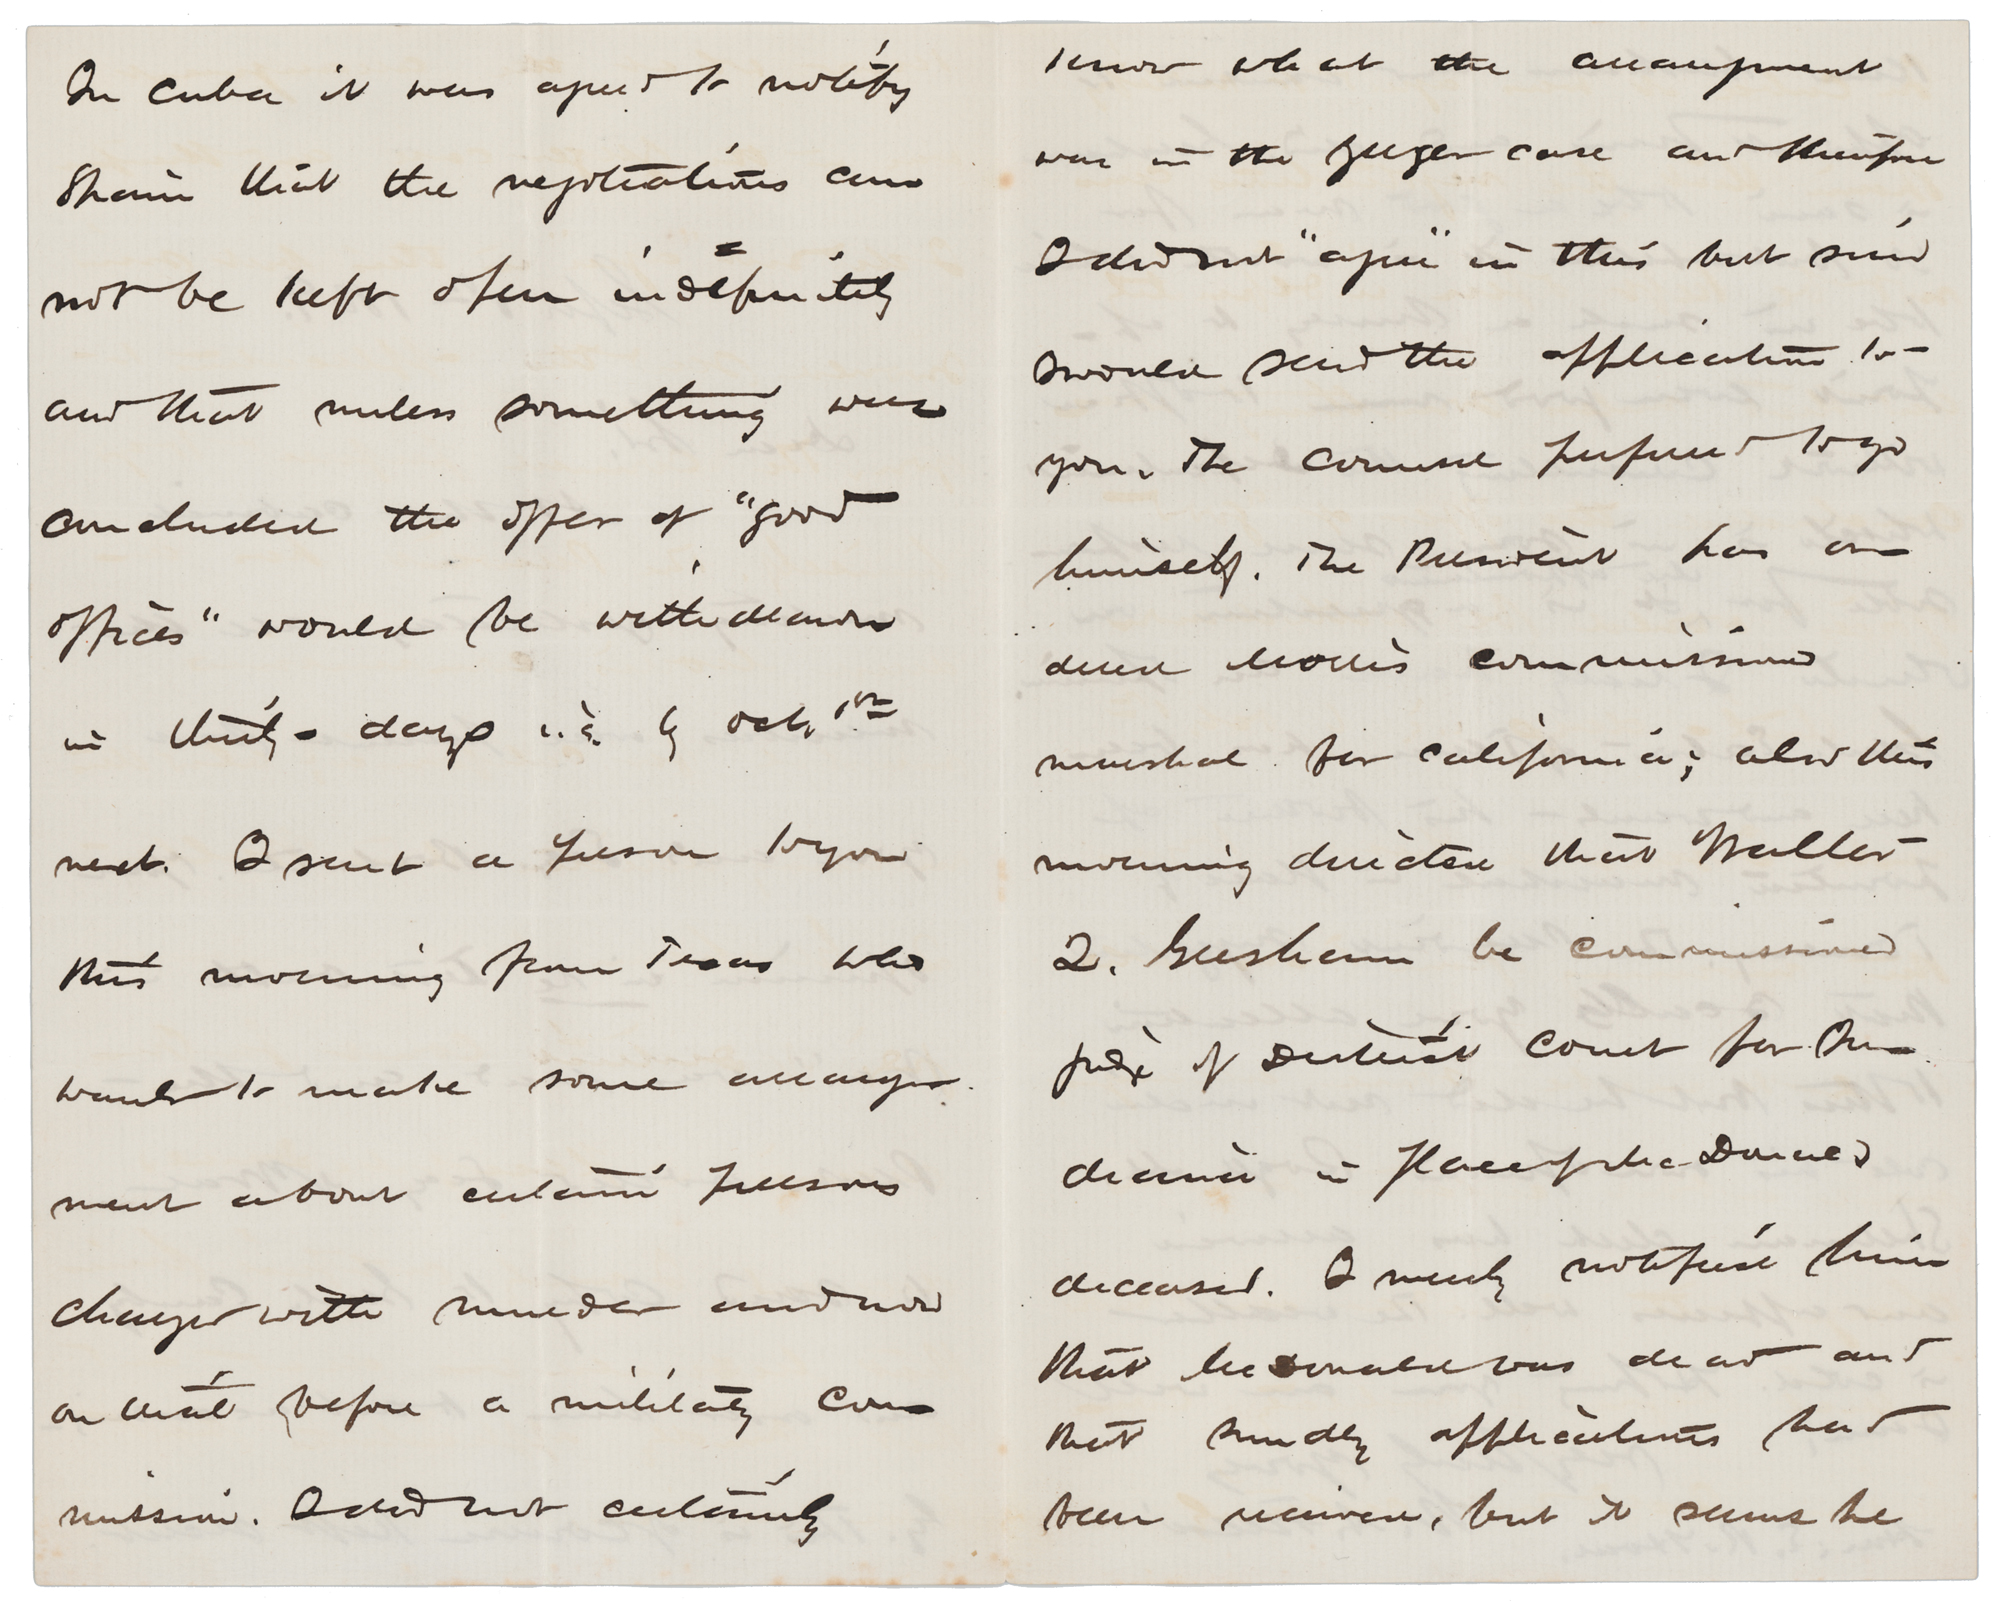 In Cuba it was agreed to notify
Spain that the negotiations can
not be kept open indefinitely
and that unless something was
concluded the offer of "good
offices" would be withdrawn
in thirty days i.e. by Oct. 1st
next. I sent a person to you
this morning from Texas who
wants to make some arrange-
ment about certain persons
charged with murder and now
on trial before a military com
mission. I did not certainly
know what the arrangement
was in the Yerger case and therefore
I did not "agree" in this but said
I would send the application to
you. The counsel preferred to go
himself. The President has or
dered Morris commissioned
marshal for California; also this
morning directed that Walter
Q. Gresham be commissioned
judge of District Court for In
diana in place of McDonald
deceased. I merely notified him
that McDonald was dead and
that sundry applications had
been received, but it seems he